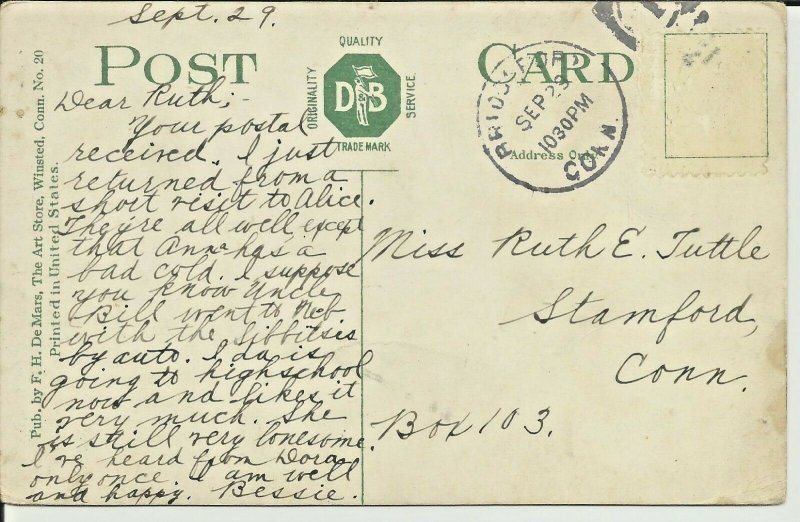 Sept. 29.
POST CARD
QUALITY
ORIGINALITY
DB
SERVICE
TRADE MARK
BRIDGEPORT
SEP 29
1030PM
CONN
Address Only
Pub. by F. H. DeMars, The Art Store, Winsted, Conn. No. 20
Printed in United States.
Dear Ruth;-
Your postal
received. I just
returned from a
short visit to Alice.
They're all well except
that Anna has a
bad cold. I suppose
you know Uncle
Bill went to Neb.
with the Sibbitses
by auto. Ida is
going to highschool
now and likes it
very much. She
is still very lonesome.
I've heard from Dora
only once. I am well
and happy. Bessie.
Miss Ruth E. Tuttle
Stamford,
Conn.
Box 103.